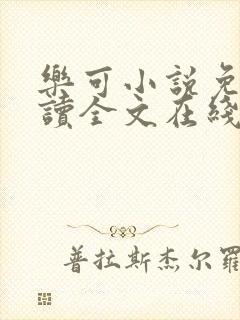 樂可小說免
讀全文在綫
普拉斯杰尔羅